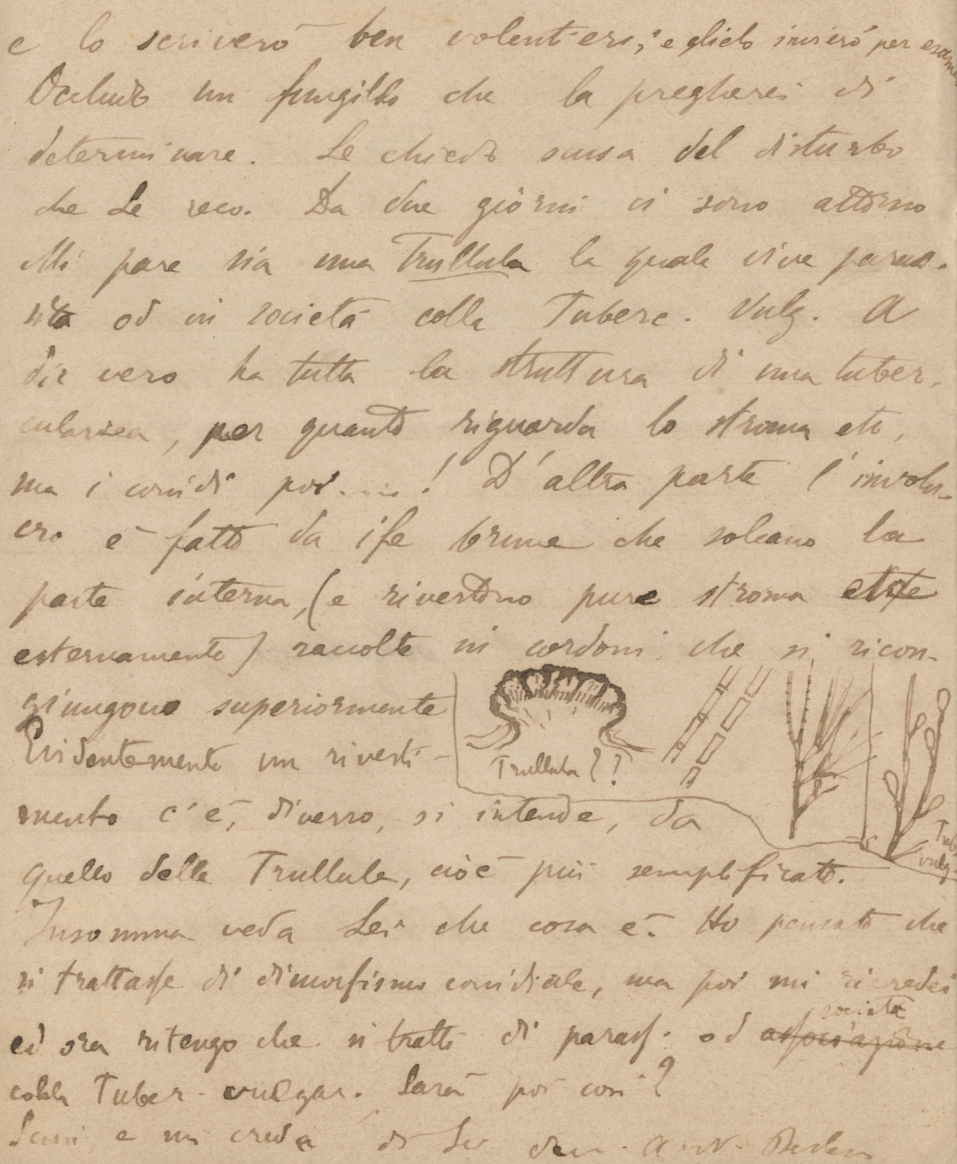 e lo scriverò ben volentieri, e glielo invierò per esame
Occludo un funghillo che la pregherei di
determinare. Le chiedo scusa del disturbo
che Le reco. Da due giorni ci sono attorno
Mi pare sia una Trullula la quale vive paras-
sita od in società colla Tuberc. Vulg. A
dir vero ha tutta la struttura di una tuber-
culariea, per quanto riguarda lo stroma etc,
ma i conidi poi....! D'altra parte l'involu-
cro è fatto da ife brune che solcano la
parte interna, (e rivestono pure stroma
esternamente) raccolte in cordoni che si ricon-
giungono superiormente
Evidentemente un rivesti-
mento c'è, diverso, si intende, da
quello della Trullula, cioè più semplificato.
Insomma veda Lei che cosa è. Ho pensato che
si trattasse di dimorfismo conidiale, ma poi mi ricredei
ed ora ritengo che si tratti di parass. od associazione società
colla Tuber. vulgar. Sarà poi così?
Scusi e mi creda di Lei dev.
Trullula??
Tub.
vulg.